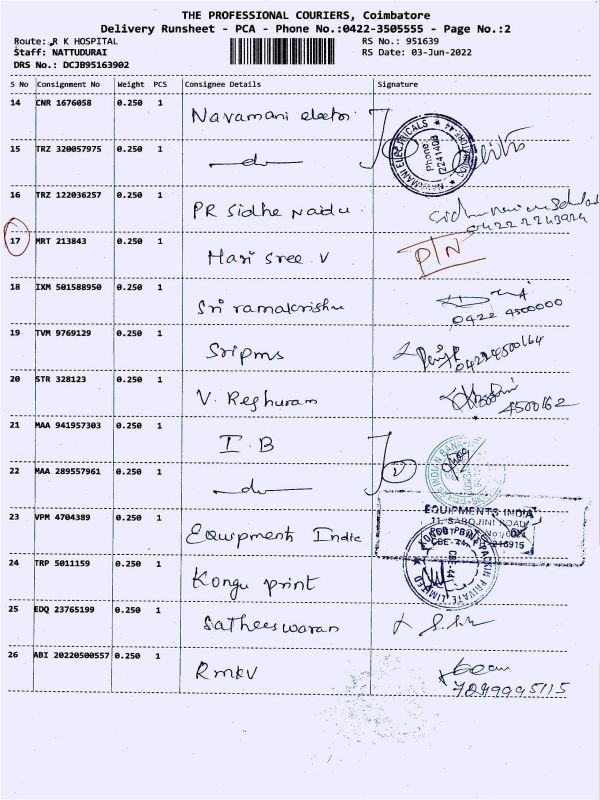 THE PROFESSIONAL COURIERS, Coimbatore
Delivery Runsheet - PCA - Phone No.:0422-3505555 - Page No.:2
Route: R K HOSPITAL RS No.: 951639
Staff: NATTUDURAI RS Date: 03-Jun-2022
DRS No.: DCJB95163902
S No Consignment No Weight PCS Consignee Details Signature
14 CNR 1676058 0.250 1 Navamani electro
15 TRZ 320057975 0.250 1 do
NAVAMANI ELECTRICALS
Phone:
2241408
16 TRZ 122036257 0.250 1 PR Sidhe Naidu
0422 2243924
17 MRT 213843 0.250 1 Hari Sree V PTN
18 IXM 501588950 0.250 1 Sri ramakrishu
0422 4500000
19 TVM 9769129 0.250 1 Sripms 04224500164
20 STR 328123 0.250 1 V. Reghuram 4500162
21 MAA 941957303 0.250 1 I.B
INDIAN BANK
22 MAA 289557961 0.250 1 do 2
23 VPM 4704389 0.250 1 Equipments India
EQUIPMENTS INDIA
11, SAROJINI ROAD
24 TRP 5011159 0.250 1 Kongu print
PRIVATE LIMITED
CBE-44
25 EDQ 23765199 0.250 1 Satheeswaran
26 ABI 20220500557 0.250 1 RmKV
7299995115